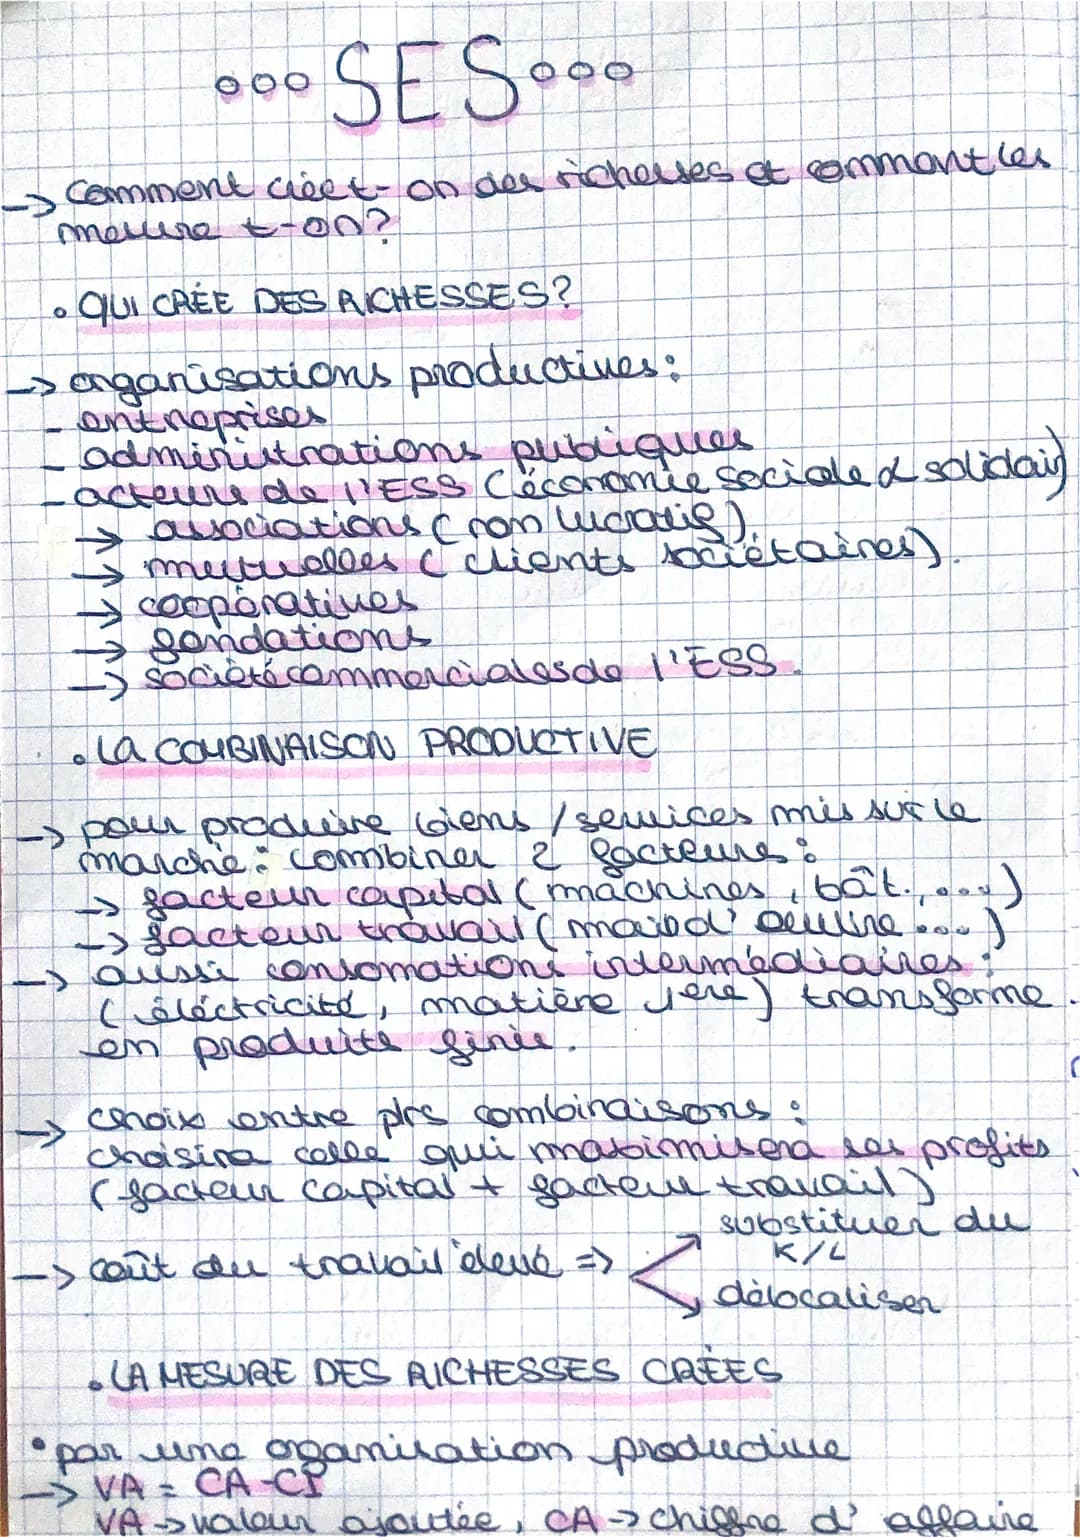 °°° SES °°°
-> Comment crée t-on des richesses et comment les
mesure t-on?
• QUI CRÉE DES RICHESSES?
-> organisations productives:
- entreprises
- administrations publiques
- acteurs de l'ESS (économie sociale & solidair)
-> associations (non lucratif)
-> mutuelles (clients sociétaires).
-> coopératives
-> fondations
-> société commerciales de l'ESS.
• LA COMBINAISON PRODUCTIVE
-> pour produire biens / services mis sur le
marché: combiner 2 facteurs:
-> facteur capital (machines, bât., ...)
-> facteur travail (main d'oeuvre ...)
-> aussi consomations intermédiaires:
(éléctricité, matière 1ère) transforme
en produits finis.
-> choix entre plrs combinaisons:
choisira celle qui maximisera ses profits
(facteur capital + facteur travail)
substituer du
K/L
-> coût du travail élevé =>
délocaliser
• LA MESURE DES RICHESSES CRÉÉES
• par une organisation productive
-> VA = CA-CI
VA -> valeur ajoutée, CA -> chiffre d'affaire